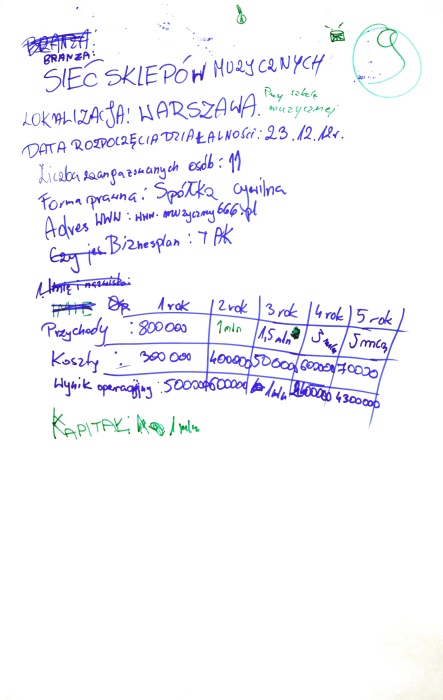 BRANŻA:
BRANŻA:
SIEĆ SKLEPÓW MUZYCZNYCH
LOKALIZACJA: WARSZAWA. Przy szkole muzycznej
DATA ROZPOCZĘCIA DZIAŁALNOŚCI: 23.12.12r.
Liczba zaangażowanych osób: 11
Forma prawna: Spółka cywilna
Adres WWW: www.muzyczny666.pl
Czy jes Biznesplan: TAK
1. Imię i nazwisko:
IMIE 1 rok 2 rok 3 rok 4 rok 5 rok
Przychody: 800 000 1 mln 1,5 mln 5 mln 5 mln
Koszty: 300 000 400000 500000 600000 70000
Wynik operacyjny: 500000 600000 1 mln 4300000
KAPITAŁ: 1 mln